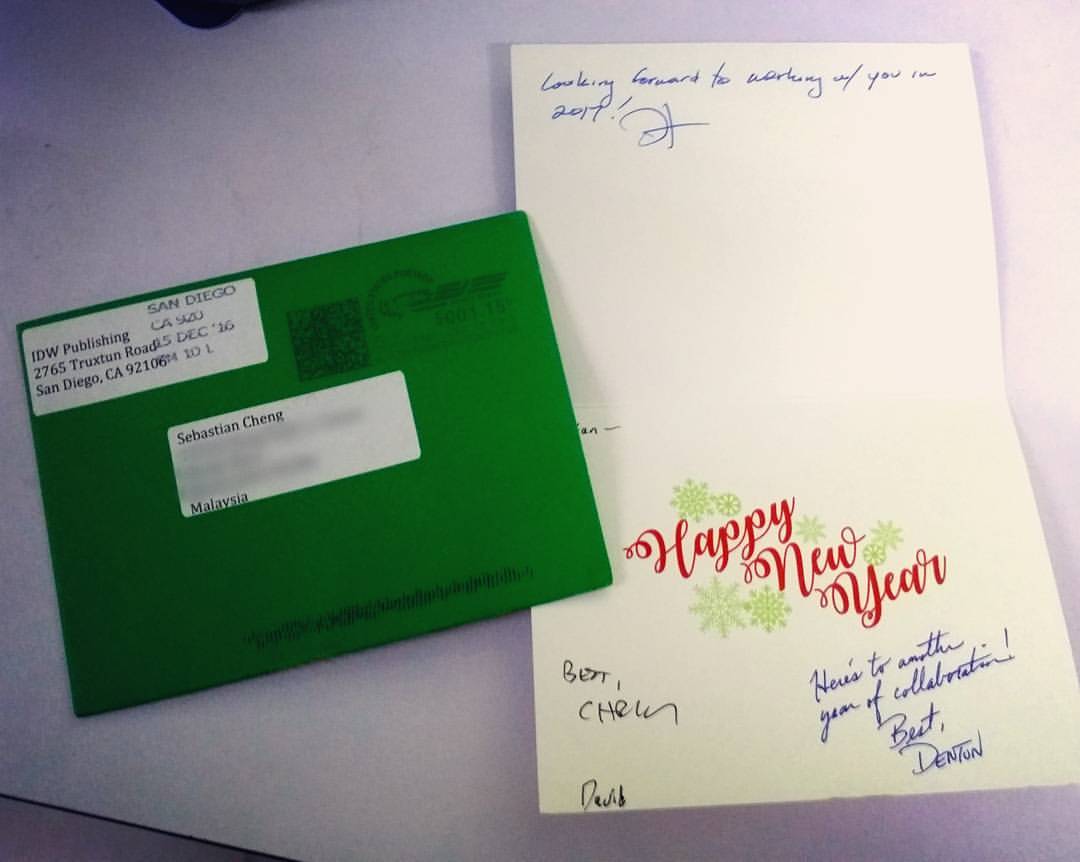 Looking forward to working w/ you in
2017!
SAN DIEGO
CA 920
15 DEC '16
PM 10 L
IDW Publishing
2765 Truxtun Road
San Diego, CA 92106
$001.15
Sebastian Cheng
Malaysia
an —
Happy
New
Year
BEST,
Here's to another
year of collaboration!
Best,
DENTON
David